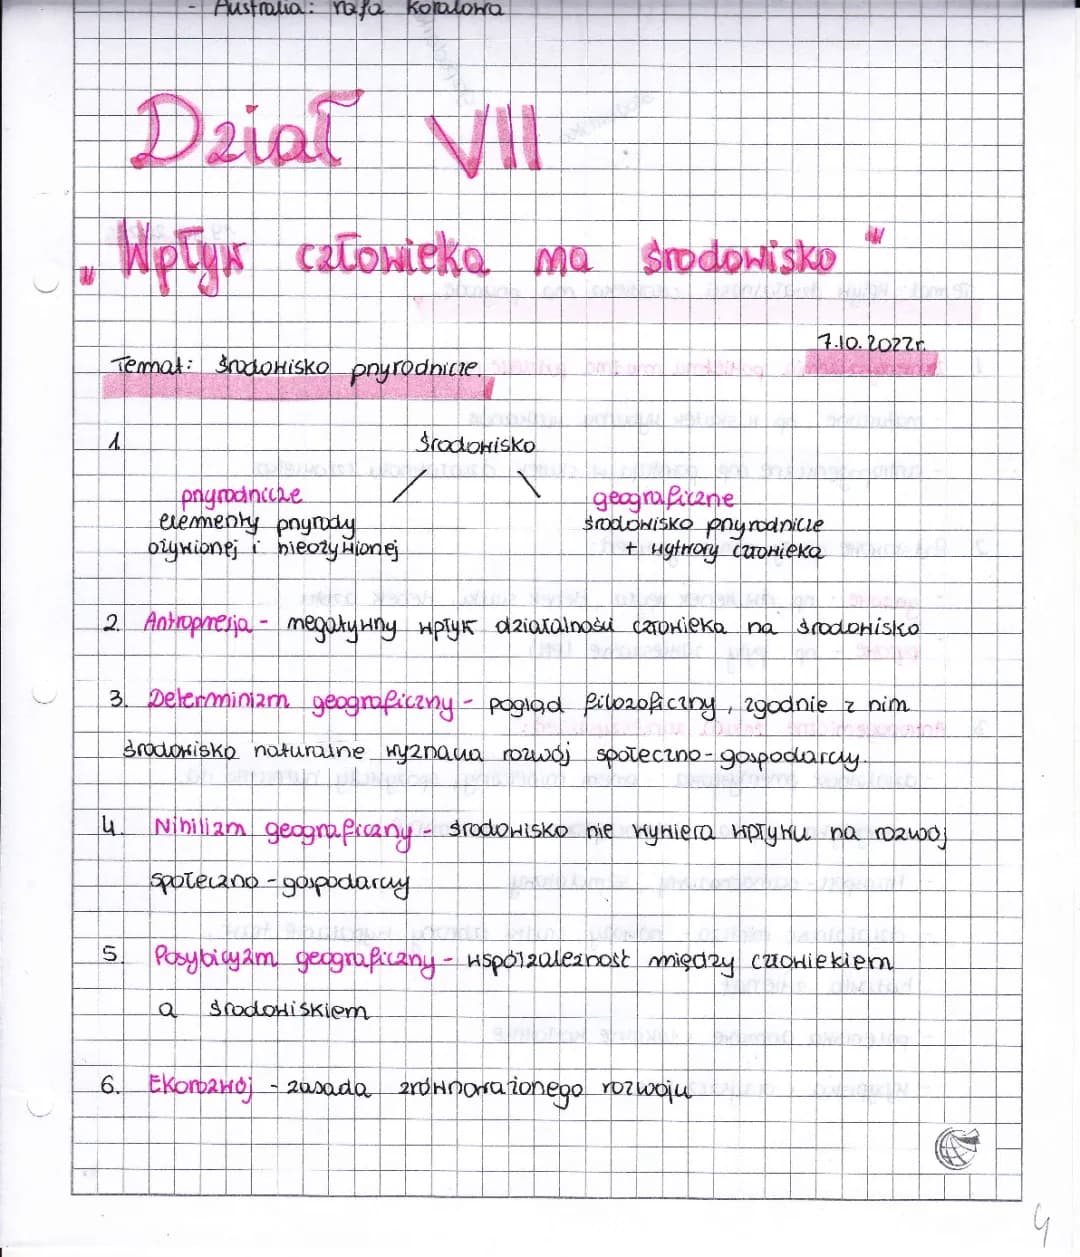 - Australia: rafa koralowa
Dział VII
"Wpływ człowieka na środowisko"
7.10.2022r.
Temat: Środowisko przyrodnicze.
1. Środowisko
przyrodnicze
elementy przyrody
ożywionej i nieożywionej
geograficzne
środowisko przyrodnicze
+ wytwory człowieka
2. Antropresja - negatywny wpływ działalności człowieka na środowisko
3. Determinizm geograficzny - pogląd filozoficzny, zgodnie z nim
środowisko naturalne wyznacza rozwój społeczno-gospodarczy.
4. Nihilizm geograficzny - środowisko nie wywiera wpływu na rozwój
społeczno-gospodarczy
5. Posybilizm geograficzny - współzależność między człowiekiem
a środowiskiem
6. Ekorozwój - zasada zrównoważonego rozwoju
4